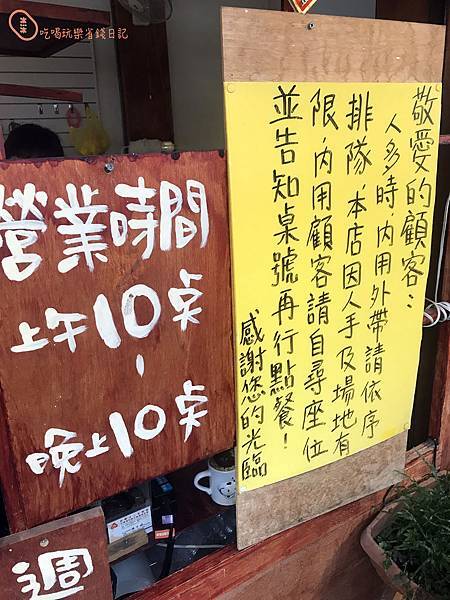 吃喝玩樂省錢日記
敬愛的顧客：
人多時，內用外帶請依序
排隊，本店因人手及場地有
限，內用顧客請自尋座位
並告知桌號再行點餐！
感謝您的光臨
營業時間
上午10桌
-
晚上10桌
週